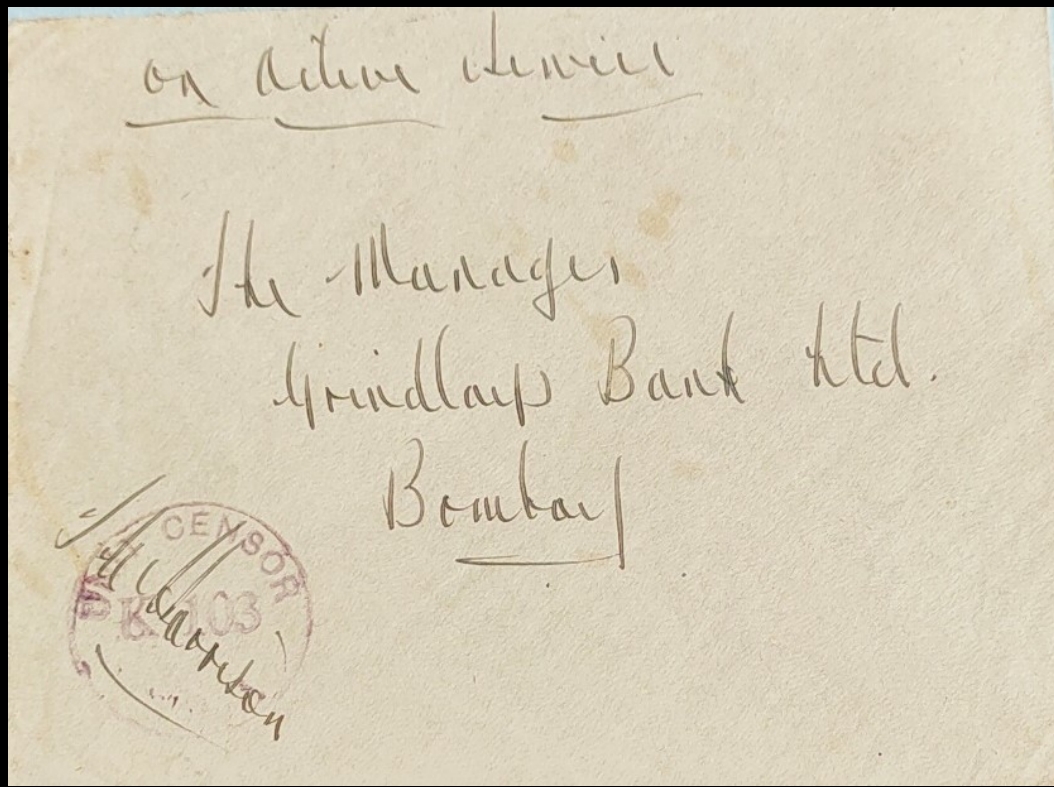 on Active Service
The Manager
Grindlays Bank Ltd.
Bombay
CENSOR
103